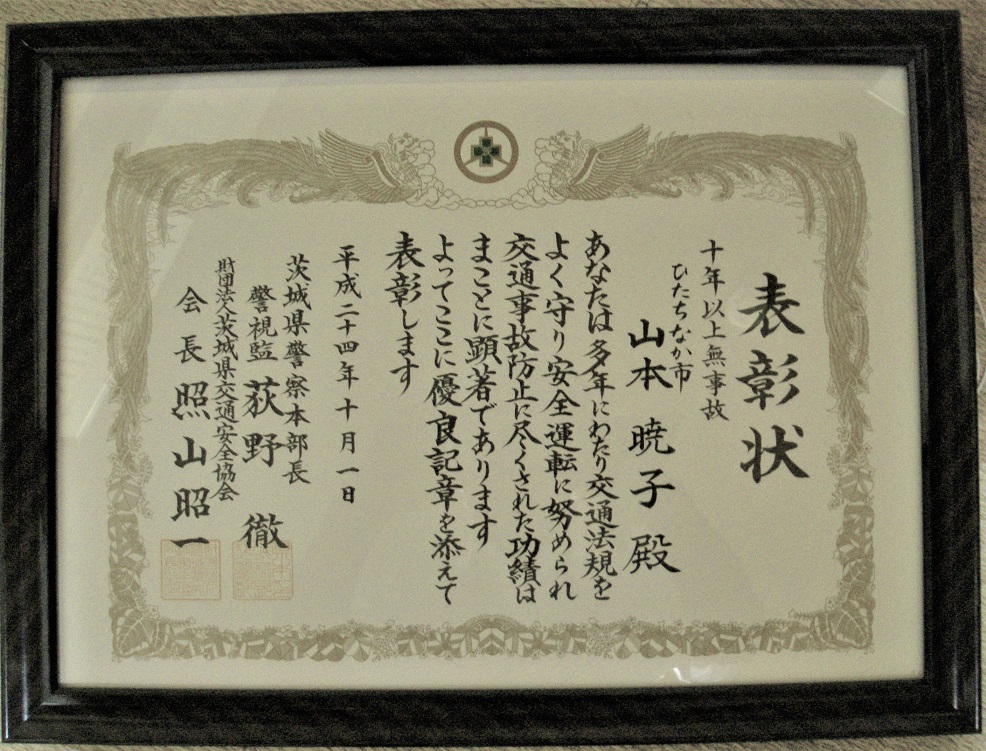 表彰状
十年以上無事故
ひたちなか市
山本暁子殿
あなたは多年にわたり交通法規を
よく守り安全運転に努められ
交通事故防止に尽くされた功績は
まことに顕著であります
よってここに優良記章を添えて
表彰します
平成二十四年十月一日
茨城県警察本部長
警視監 荻野 徹
財団法人茨城県交通安全協会
会長 照山昭一